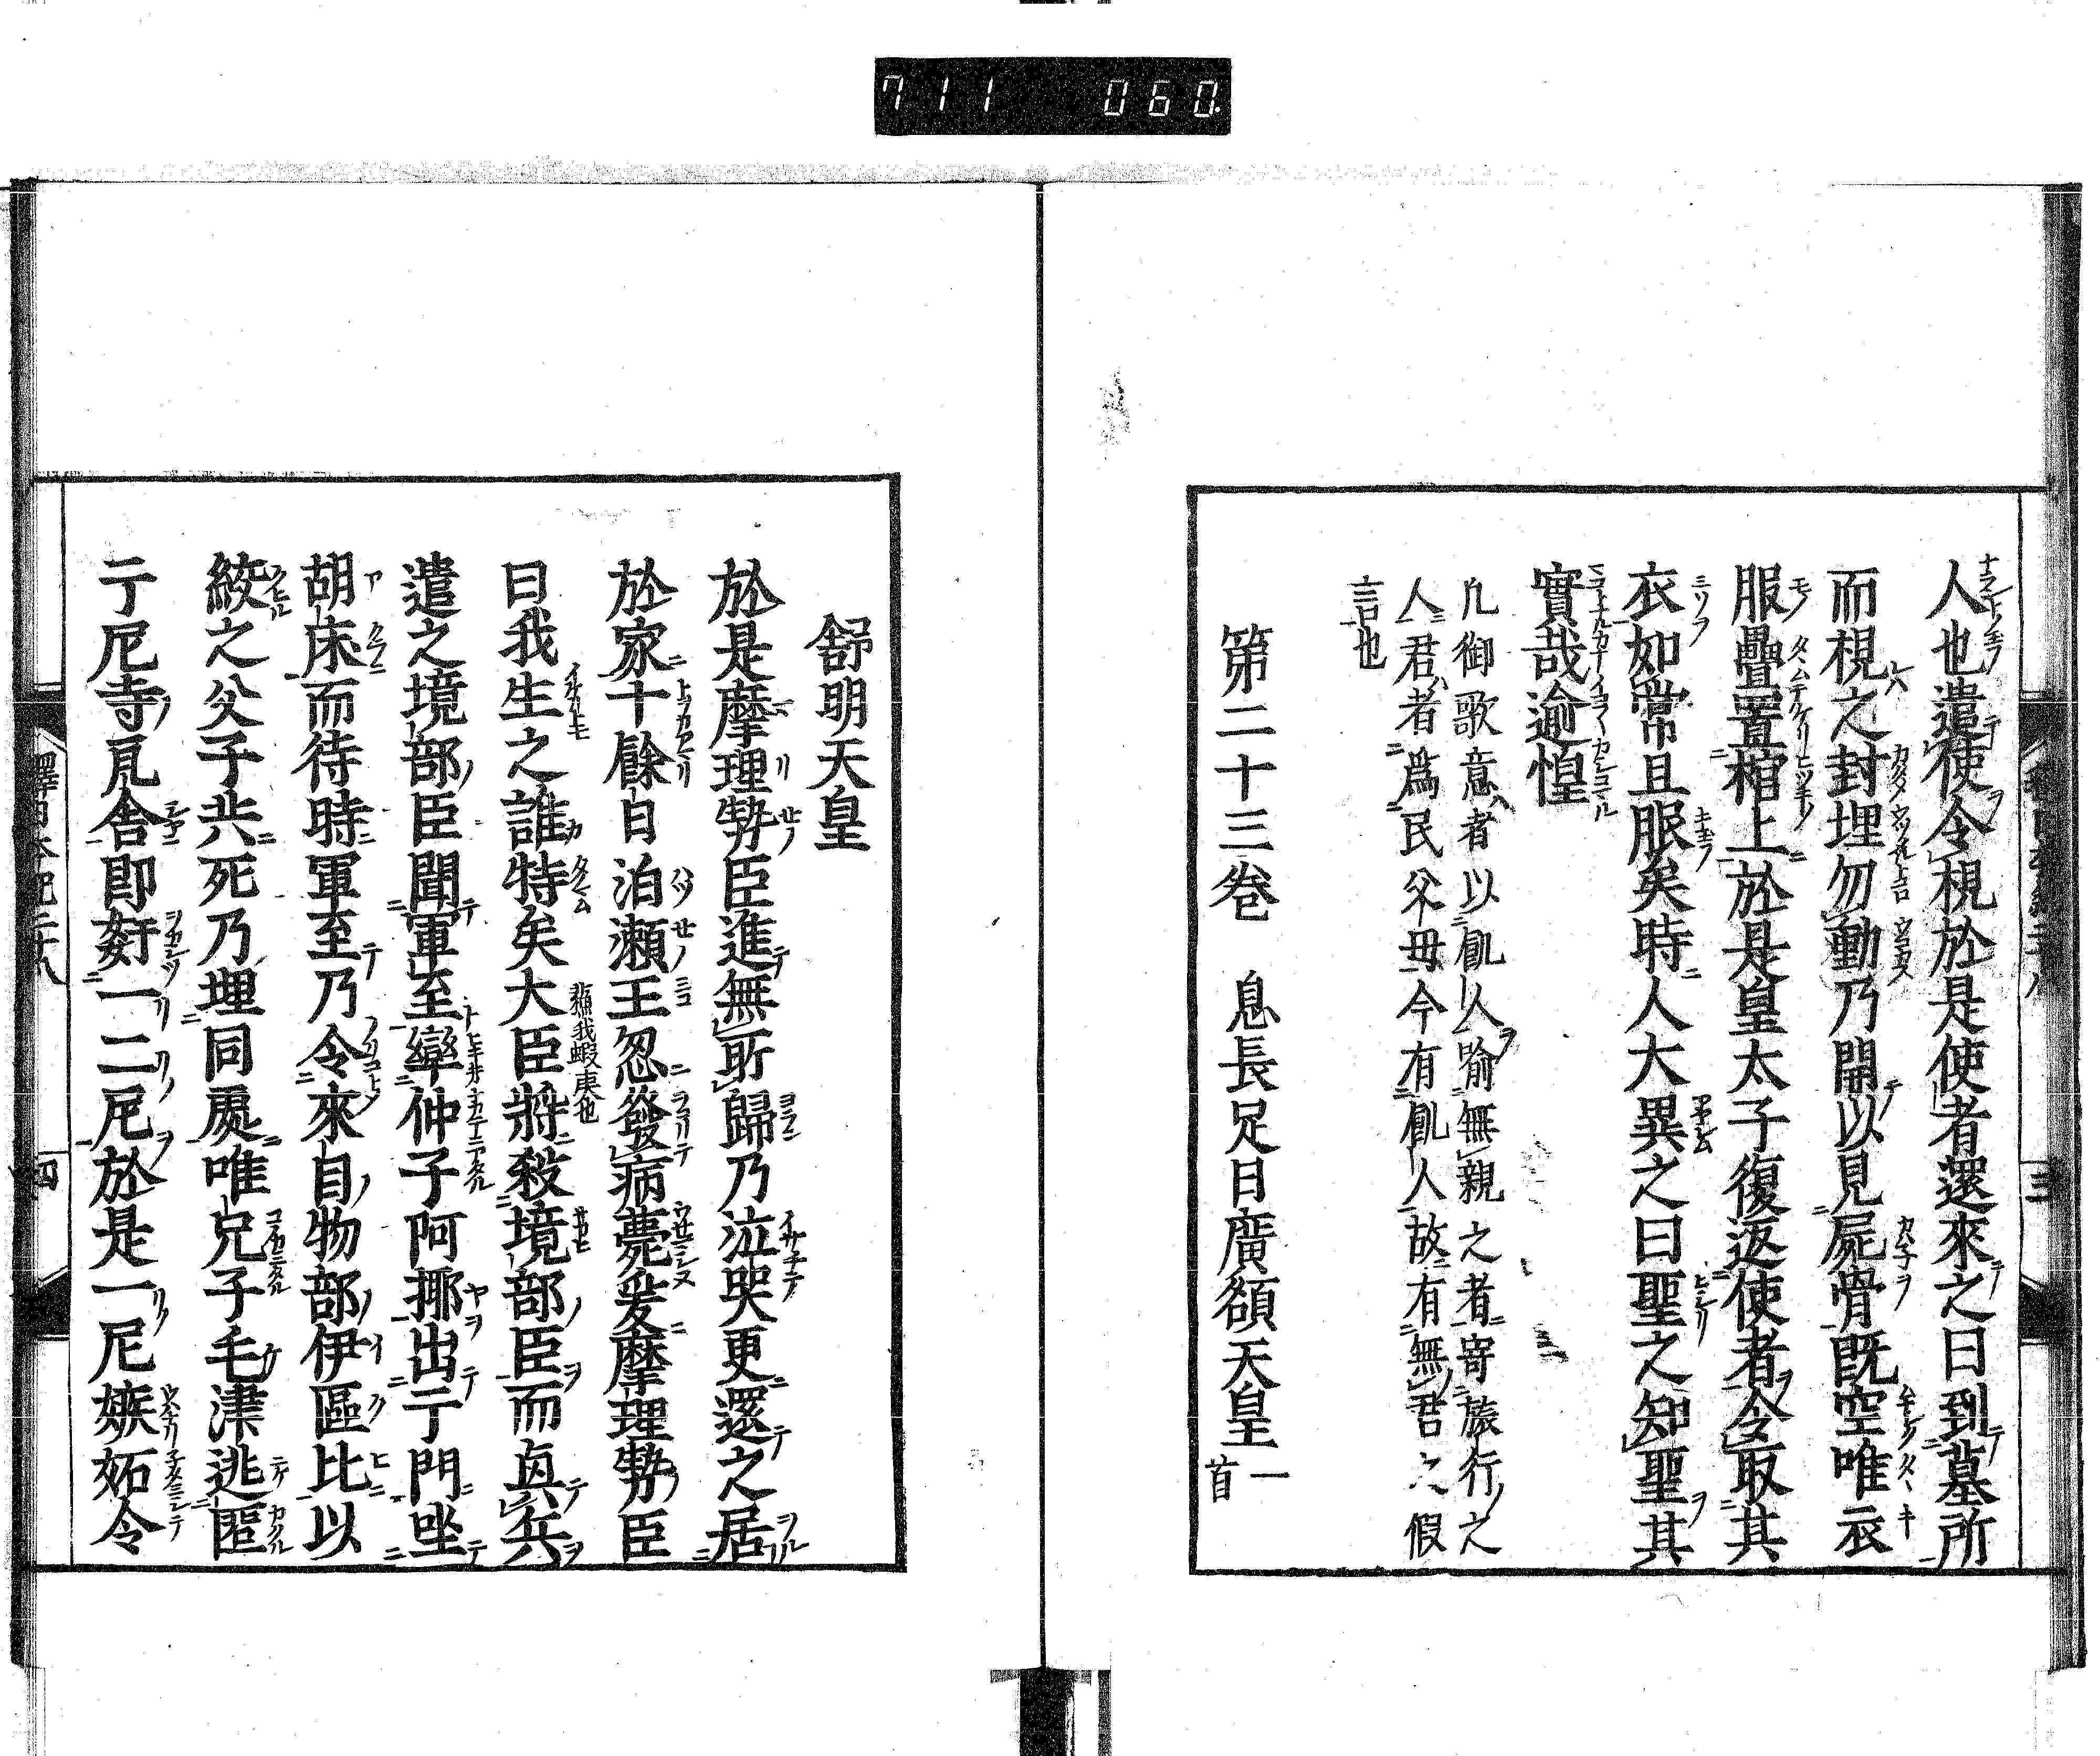 711 060
人也遣使令視於是使者還來之曰到墓所
而視之封埋勿動乃開以見屍骨既空唯衣
服疊置棺上於是皇太子復返使者令取其
衣如常且服矣時人大異之曰聖之知聖其
實哉逾惶
凡御歌意者以飢人喻無親之者寄旅行之
人君者爲民父母今有飢人故有無君之假
言也
第二十三卷 息長足日廣額天皇 一首
三
舒明天皇
於是摩理勢臣進無所歸乃泣哭更還之居
於家十餘日泊瀬王忽發病薨爰摩理勢臣
曰我生之誰恃矣大臣將殺境部臣而興兵
蘇我蝦夷也
遣之境部臣聞軍至率仲子阿揶出于門坐
胡床而待時軍至乃令來目物部伊區比以
絞之父子共死乃埋同處唯兄子毛津逃匿
于尼寺瓦舍即姧一二尼於是一尼嫉妬令
釋日本紀二十八
四